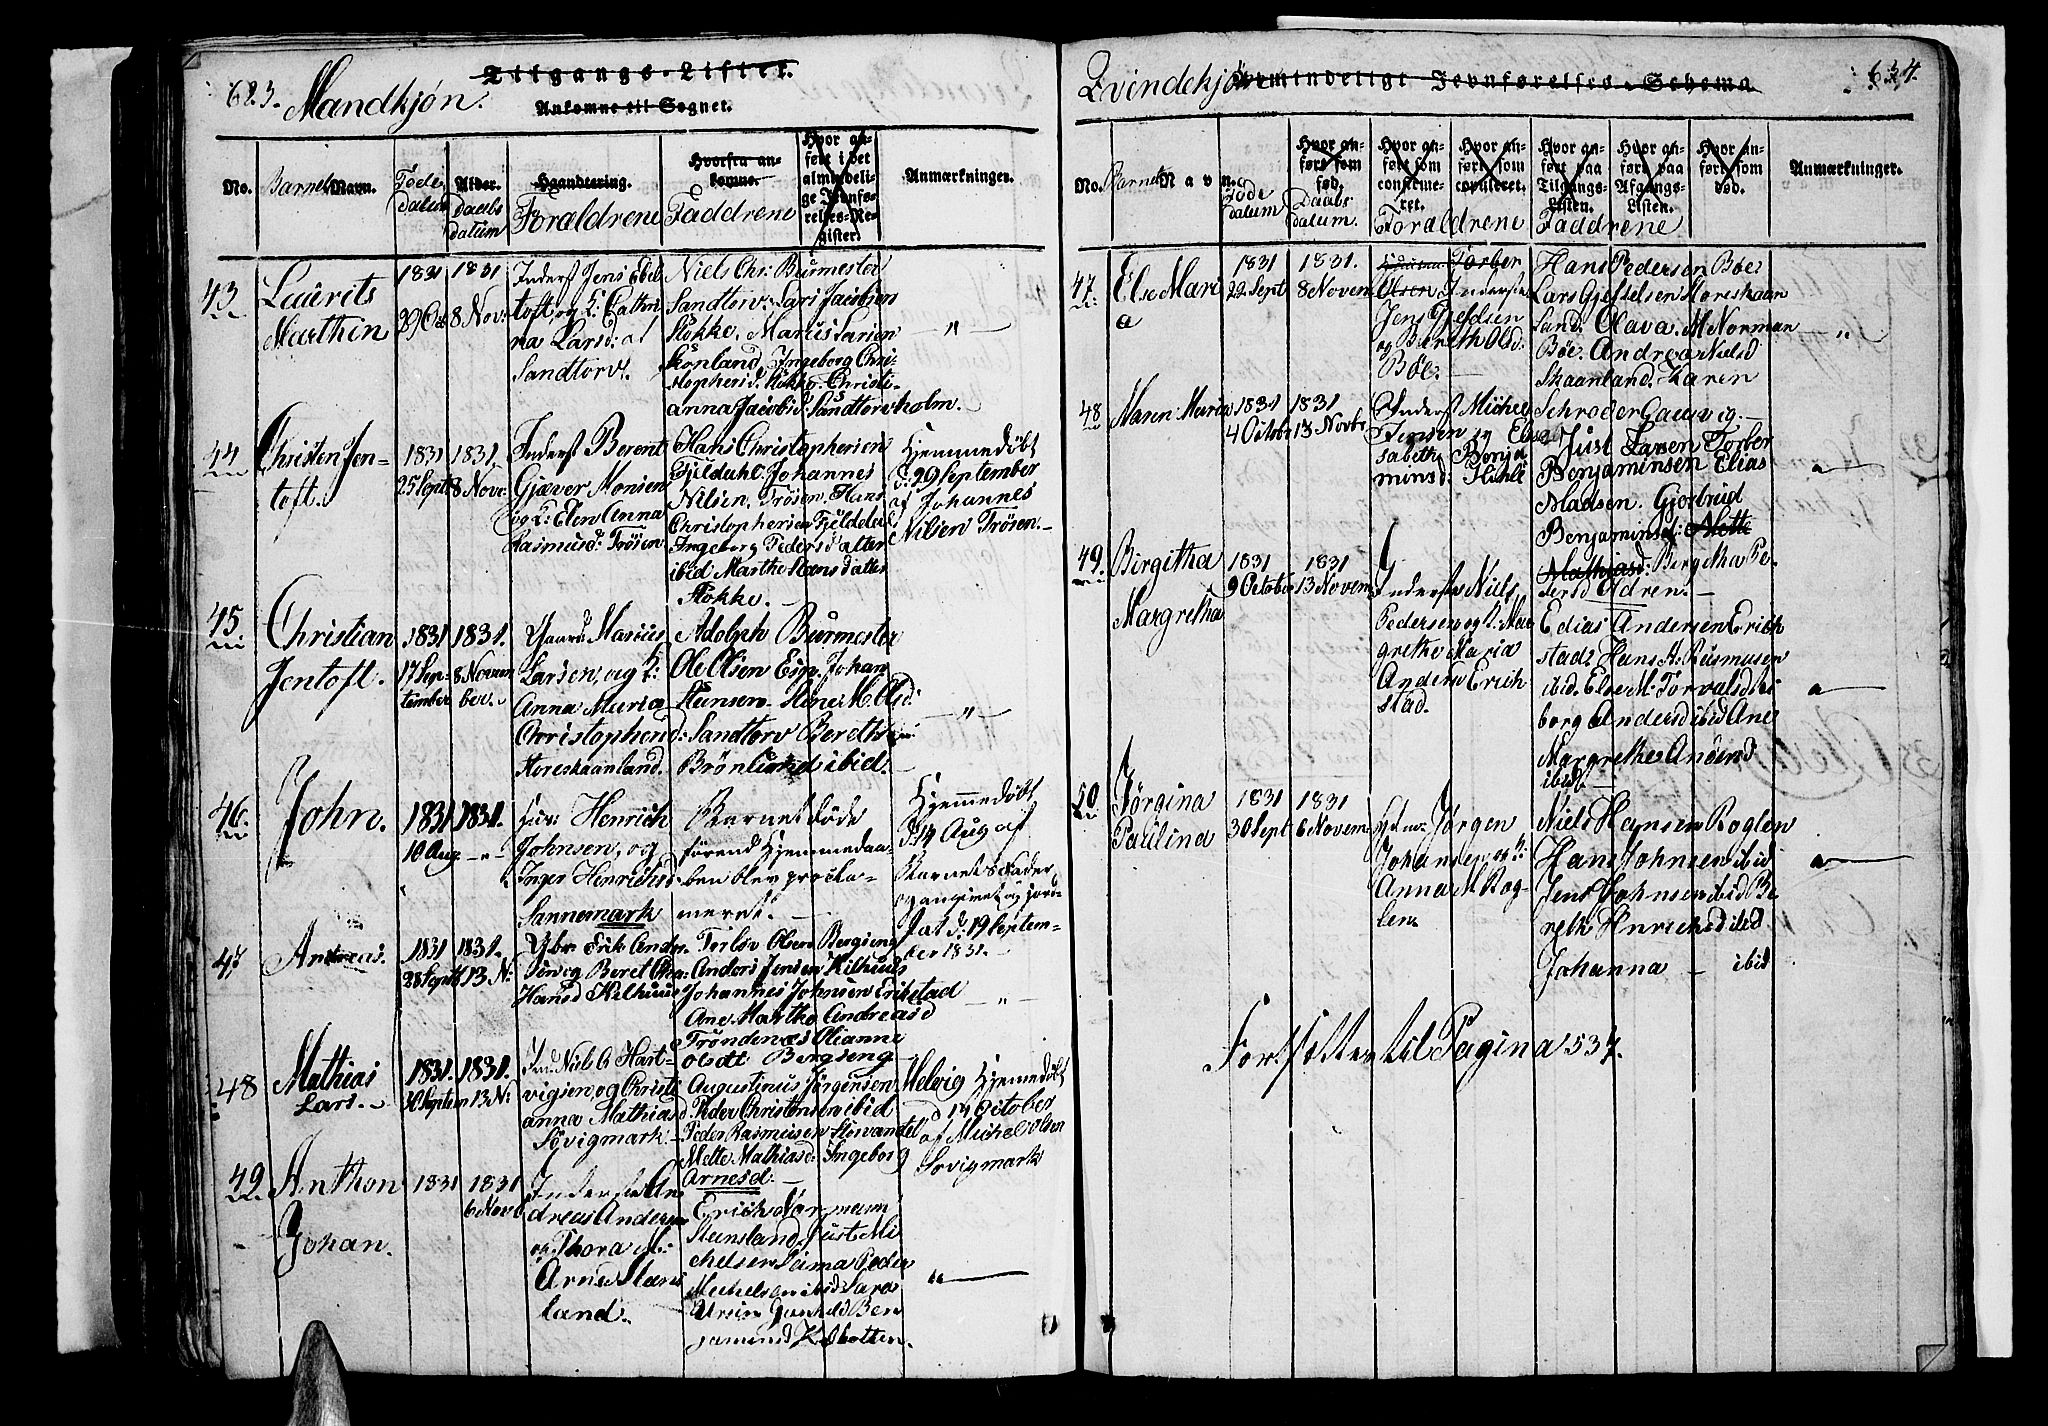 623.
Mandkjön.
Tilgangs-Lister.
Ankomne til Sognet.
No.
Barnets Navn.
Föde datum
Alder.
Daabs datum
Haandtering.
Foraldrene
Hvorfra ankomne.
Faddrene
Hvor anført i det almindelige Jevnførelses-Register.
Anmærkninger.
43
Laurits
Marthin
1831
29 Oct
1831
8 Nov:
Inderst Jens Ebel
toft, og K: Cathri
na Larsd: af
Sandtorv.
Niels Chr: Burmester
Sandtorv: Lars Jacobsen
Stokke, Marius Larsen
Skönland, Ingeborg Chri-
stophersd. Stokke. Christi-
anna Jacobsd: Sandtorvholm.
— " —
44
Christen Jen-
toft.
1831
25 Sept
1831.
8 Nov.
Inderst Berent
Gjæver Monsen
og K: Elen Anna
Rasmusd: Trösen
Hans Christophersen
Fjeldahl. Johannes
Nilsen, Trösen, Hans
Christophersen Fjeldal
Ingeborg Pedersdatter
ibid Marthe Hansdatter
Stokke. —
Hjemmedöbt
d: 29 September
af Johannes
Nilsen Trösen. —
45.
Christian
Jentoft.
1831
17 Sep-
tember
1831.
8 Novem
ber.
Gaardm Marius
Larsen, og K:
Anna Maria
Christophersd:
Horeskaanland.
Adolph Burmester
Ole Olsen Eiga. Johan
Hansen. Stine M. Olsd:
Sandtorv Bereth
Brönlund ibid.
— " —
46.
John.
1831
10 Aug
1831.
— " —
Henrich
Johnsen, og
Inger Henrichsd:
Sannemark
Barnet döde
förend Hjemmedaa-
ben blev procla-
meret. —
Hjemmedöbt
d 14 Aug af
Barnets Fader
og angivet og jord-
fat d: 19 Septem-
ber 1831. —
47
Andreas.
1831
28 Septb
1831.
13 N:
Erik Andr.
Sön og Beret Ana
Hansd Kilhuus
Torlöv Olsen Bergseng
Anders Jensen Kilhuus
Johannes Johnsen Erikstad
Ane Marthe Andreasd
Tröndenæs Olianne
Olsdt Bergseng —
— " —
48
Mathias
Lars. —
1831.
30 Septem
1831.
13 N:
Ind: Niels A Hart-
vigsen, og Christi
anna Mathiasd
Sövigmark. —
Augustinus Jörgensen
Peder Christensen ibid
Peder Rasmusen Storvandel
Mette Mathiasd: Ingeborg
Arnesd. —
Melvig Hjemmedöbt
d 14 October
af Michel Olsen
Sovigmark
49.
Anthon
Johan.
1831
1831
6 Novb
Inderste An
dreas Anderse
og Thora M:
Arnes Steens
land.
Erich Normann
Stensland, Just Mi
chelsen Sama Peder
Michelsen ibid Sara
Ursin Gunhild Ben
jaminsd Kilbotten.
" —
Qvindekjön
Almindeligt Jevnførelses-Schema
624.
No.
Barnets Navn.
Föde datum
Hvor anført som fød.
Daabs datum.
Hvor anført som confirmeret.
Hvor anført som copuleret.
Foraldrene
Hvor anført paa Tilgangs-Listen.
Hvor anført paa Afgangs-Listen.
Faddrene
Hvor anført som død.
Anmærkninger.
47
Else Mari
a
1831
22 Sept
1831.
8 Novem
Torber
Olsen Inderste
Jens Gjeldsen
og Bereth Olsd:
Böe. —
Hans Pedersen Böe
Lars Gjeldsen Horeskaan
land. Olava. M Norman
Böe. Andrea Nielsd
Skaanland. Karen
Schroder Gausvig. —
— " —
48
Maren Maria
1831
4 Octobr
1831
13 Novbr
Inderst Michel
Jensen og Eli
sabeth Benja
minsd: Kishel
Just Larsen Torber
Benjaminsen Elias
Madsen. Gjortrud
Benjaminsd: Mette
Mathiasd: Bergitha Pe-
dersd Oldren. —
" —
49.
Birgitha
Margretha
1831
9 October
1831
13 Novem
Inderste Niels
Pedersen og K: Mar
grethe Maria
Anders Erich
stad.
Edias Andersen Erich
stad: Hans A: Rasmusen
ibid. Else M: Torvalsd
borg Andersd ibid Ane
Margrethe Andersd
ibid —
" —
50
Jörgina
Paulina
1831
30 Sept
1831
6 Novem
Jörgen
Johansen, og K:
Anna M Rog-
len.
Niels Hansen Roglen
Hans Johnsen ibid
Jens Johnsen ibid Be
reth Henrichsd ibid
Johanna — ibid
" —
Fortsættes til Pagina 537.